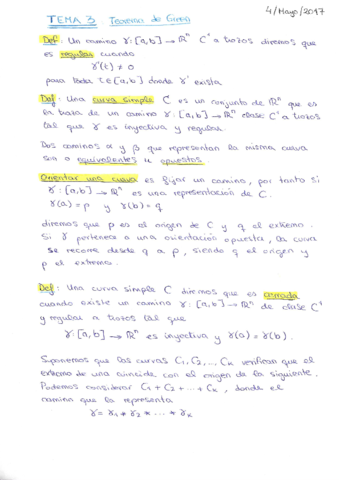 4/Mayo/2017
TEMA 3 Teorema de Green
Def: Un camino γ: [a,b] → ℝⁿ C¹ a trozos diremos que
es regular cuando
γ'(t) ≠ 0
para todo t ∈ [a,b] donde γ' exista
Def: Una curva simple C es un conjunto de ℝⁿ que es
la traza de un camino γ: [a,b] → ℝⁿ clase C¹ a trozos
tal que γ es inyectiva y regular.
Dos caminos α y β que representan la misma curva
son o equivalentes u opuestos.
Orientar una curva es fijar un camino, por tanto si
γ: [a,b] → ℝⁿ es una representación de C.
γ(a) = p y γ(b) = q
diremos que p es el origen de C y q el extremo.
Si γ pertenece a una orientación opuesta, la curva
se recorre desde q a p, siendo q el origen y
p el extremo.
Def: Una curva simple C diremos que es cerrada
cuando existe un camino γ: [a,b] → ℝⁿ de clase C¹
y regular a trozos tal que
γ: [a,b] → ℝⁿ es inyectiva y γ(a) = γ(b).
Suponemos que las curvas C₁, C₂, .., Cₖ verifican que el
extremo de una coincide con el origen de la siguiente.
Podemos considerar C₁ + C₂ + ... + Cₖ, donde el
camino que la representa
γ = γ₁ * γ₂ * ... * γₖ